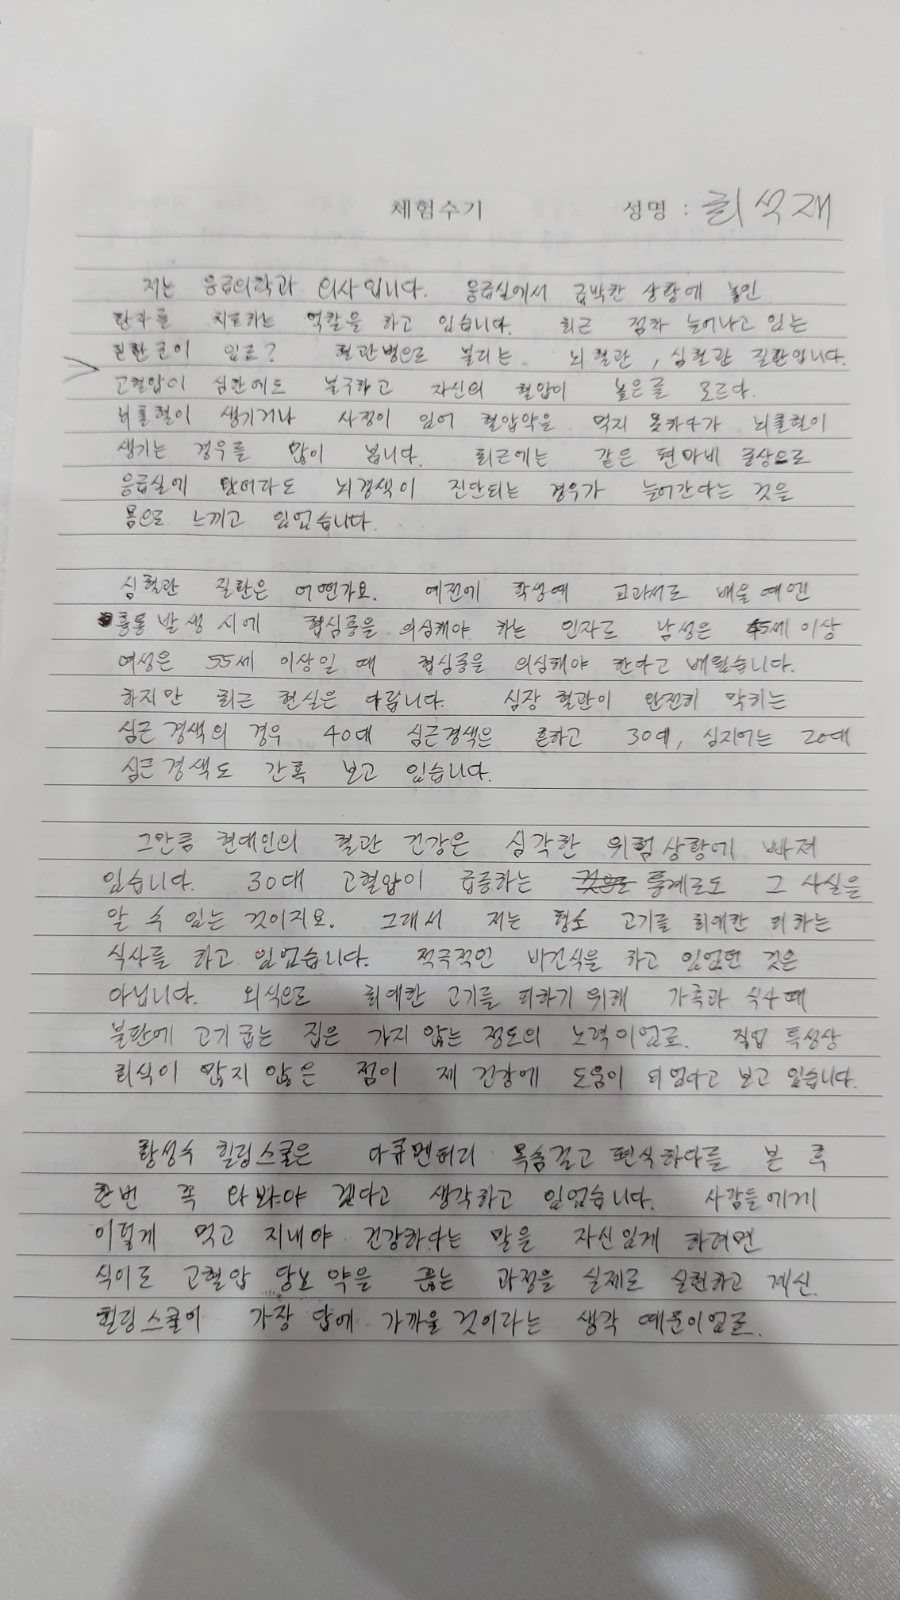 체험수기 성명 : 최석재
저는 응급의학과 의사입니다. 응급실에서 급박한 상황에 놓인
환자를 치료하는 역할을 하고 있습니다. 최근 점차 늘어나고 있는
질환군이 있죠? 혈관병으로 불리는 뇌혈관, 심혈관 질환입니다.
고혈압이 심한에도 불구하고 자신의 혈압이 높은줄 모르다
뇌출혈이 생기거나 사정이 있어 혈압약을 먹지 못하다가 뇌출혈이
생기는 경우를 많이 봅니다. 최근에는 같은 편마비 증상으로
응급실에 왔더라도 뇌경색이 진단되는 경우가 늘어간다는 것을
몸으로 느끼고 있었습니다.
심혈관 질환은 어떤가요. 예전에 학생때 교과서로 배울 때엔
흉통 발생 시에 협심증을 의심해야 하는 인자로 남성은 45세 이상
여성은 55세 이상일 때 협심증을 의심해야 한다고 배웠습니다.
하지만 최근 현실은 다릅니다. 심장 혈관이 완전히 막히는
심근경색의 경우 40대 심근경색은 흔하고 30대, 심지어는 20대
심근경색도 간혹 보고 있습니다.
그만큼 현대인의 혈관 건강은 심각한 위험상황에 빠져
있습니다. 30대 고혈압이 급증하는 통계로도 그 사실을
알 수 있는 것이지요. 그래서 저는 평소 고기를 최대한 피하는
식사를 하고 있었습니다. 적극적인 비건식을 하고 있었던 것은
아닙니다. 외식으로 최대한 고기를 피하기 위해 가족과 식사때
불판에 고기굽는 집은 가지 않는 정도의 노력이었죠. 직업 특성상
회식이 많지 않은 점이 제 건강에 도움이 되었다고 보고 있습니다.
황성수 힐링스쿨은 다큐멘터리 목숨걸고 편식하다를 본 후
한번 꼭 와봐야 겠다고 생각하고 있었습니다. 사람들에게
이렇게 먹고 지내야 건강하다는 말을 자신있게 하려면
식이로 고혈압 당뇨 약을 끊는 과정을 실제로 실천하고 계신
힐링스쿨이 가장 답에 가까울 것이라는 생각 때문이었죠.